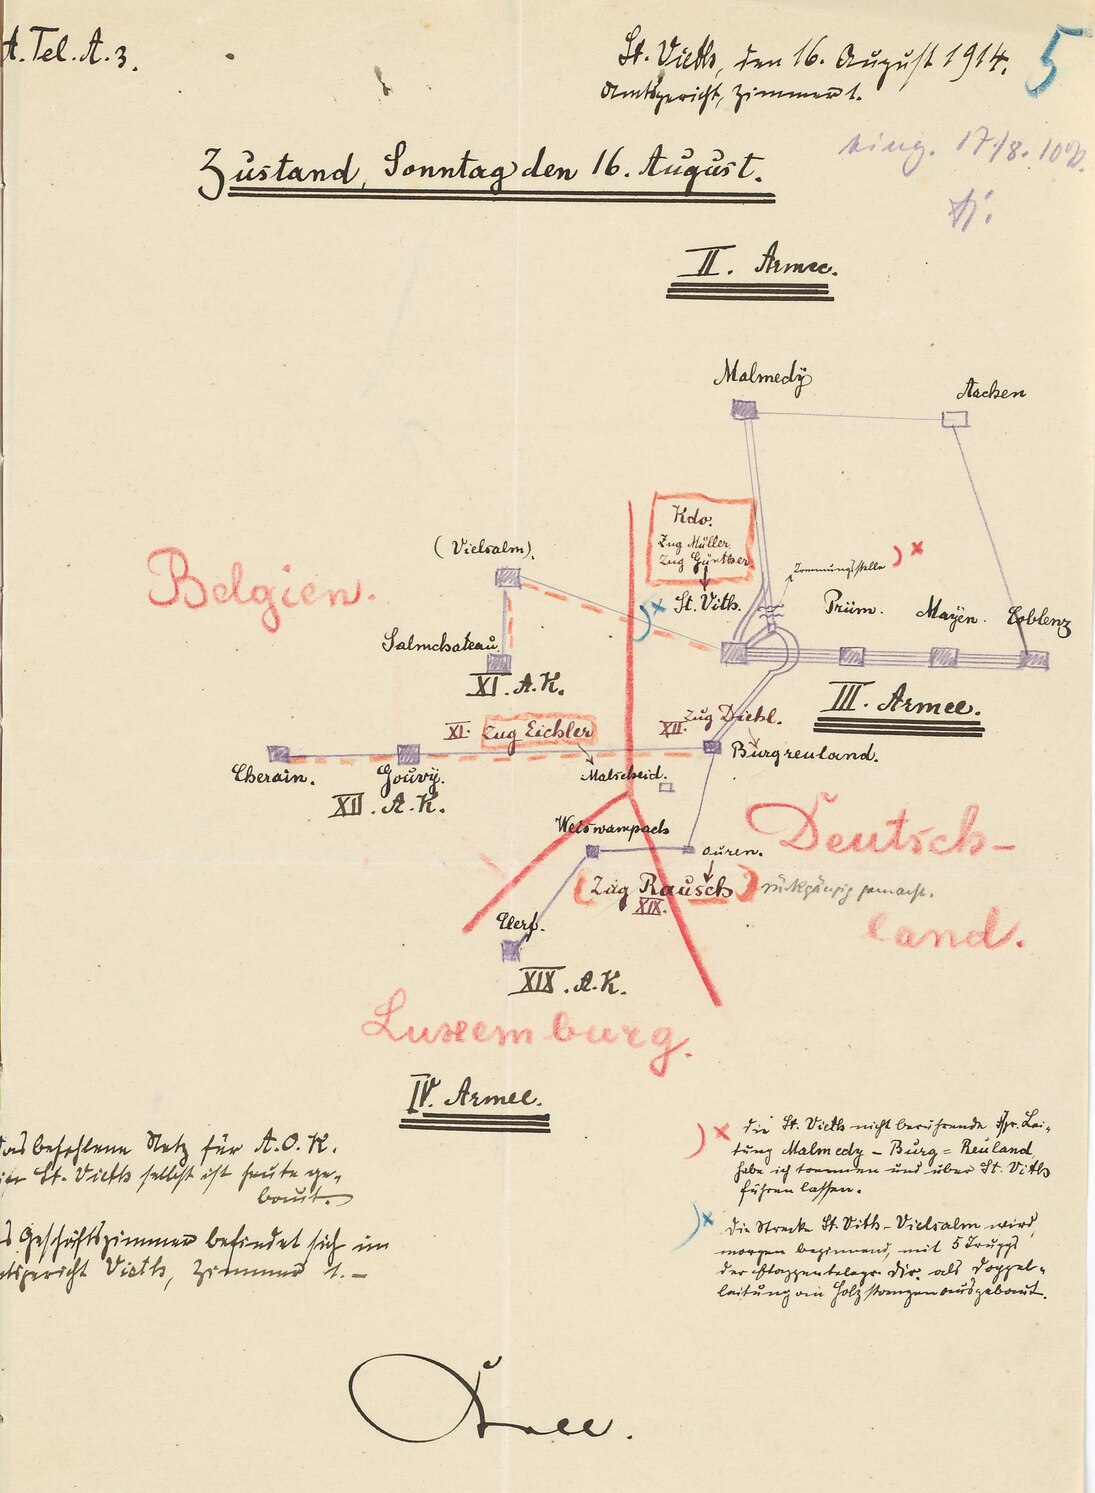 A. Tel. A. 3.
St. Vieth, den 16. August 1914.
Amtsgericht, Zimmer 1.
5
eing. 17/8. 10
Zustand, Sonntag den 16. August.
II. Armee.
Malmedÿ
Aachen
Kdo.
Zug Müller.
Zug Günther
(Vielsalm).
Trennungsstelle )x
Belgien.
x St. Vith.
Prüm.
Mayen.
Coblenz
Salmchateau.
XI. A.K.
III. Armee.
XI. Zug Eichler
XII. Zug Diehl.
Burgreuland.
Cherain.
Gouvÿ.
Malscheid.
XII. A.K.
Weiswampach
Ouren.
Deutsch-
land.
(Zug Rausch) rückgängig gemacht.
XIX.
Clerf.
XIX. A.K.
Luxemburg.
IV. Armee.
Das befohlene Netz für A.O.K.
St. Vieth selbst ist heute ge-
baut.
Geschäftszimmer befindet sich im
Vieth, Zimmer 1.–
)x Die St. Vieth nicht berührende Spr. Lei-
tung Malmedy – Burg=Reuland,
habe ich trennen und über St. Vith
führen lassen.
)x Die Strecke St. Vith–Vielsalm wird,
morgen beginnend, mit 5 Trupps
der Etappentelegr. Dir. als Doppel-
leitung an Holzstangen ausgebaut.